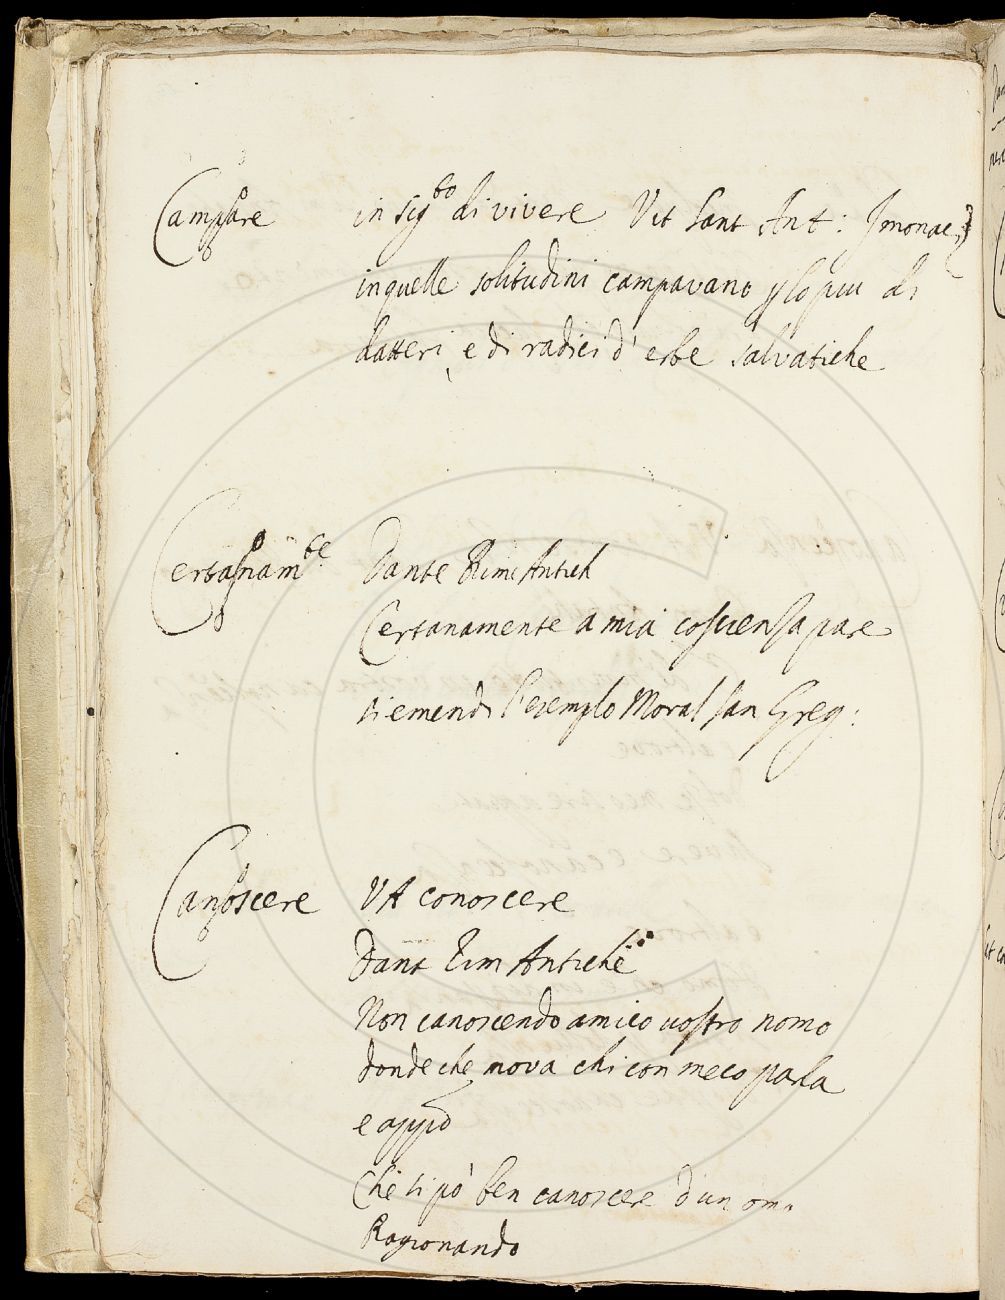 Campare in sig.to di vivere Vit Sant Ant: I monaci
in quelle solitudini campavano p lo piu di
datteri, e di radici d'erbe salvatiche
Certanam.te Dante Rime Antich
Certanamente a mia coscienza pare
si emendi l'esemplo Moral San Greg:
Canoscere VA conoscere
Dant Rim Antiche
Non canoscendo amico vostro nomo
donde che mova chi con meco parla
e appo
Che si pò ben canoscere d'un om.
Ragionando